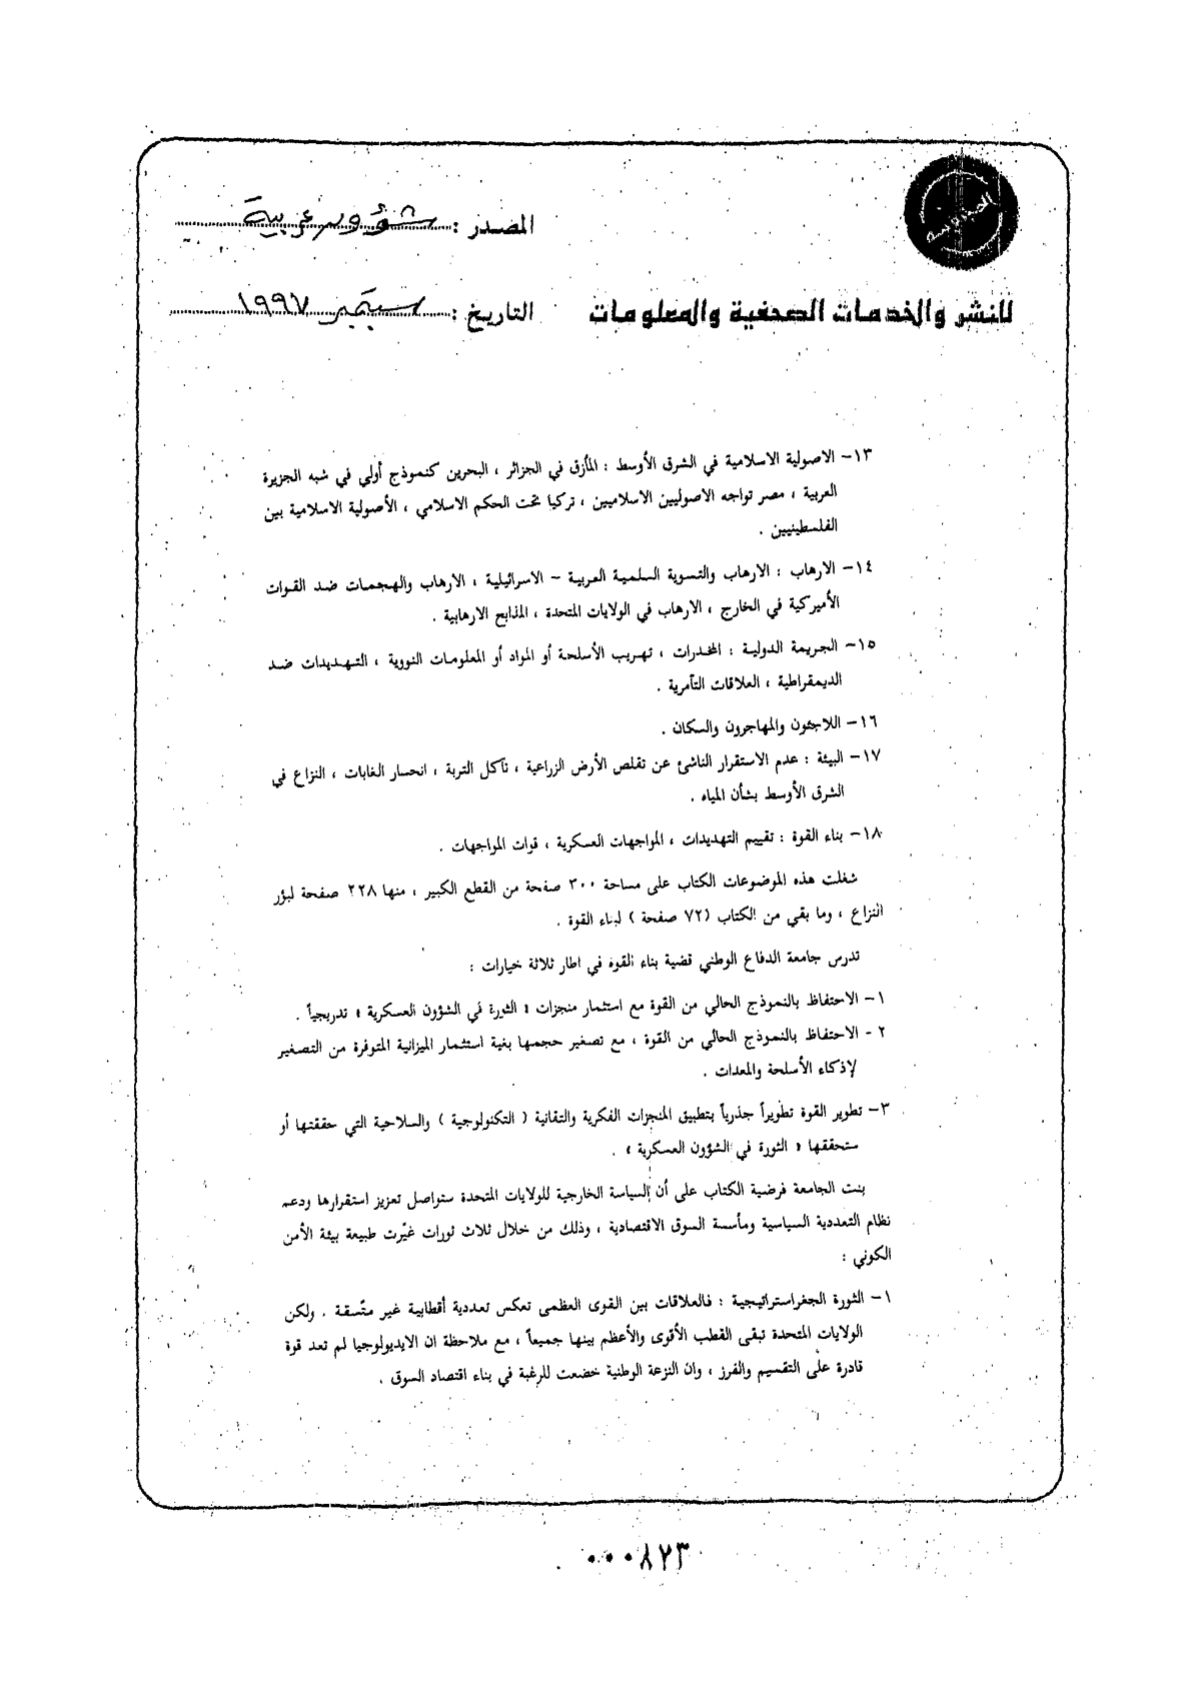 المصدر : شؤون عربية
للنشر والخدمات الصحفية والمعلومات
التاريخ : سبتمبر ١٩٩٧
١٣– الاصولية الاسلامية في الشرق الأوسط : المأزق في الجزائر ، البحرين كنموذج أولي في شبه الجزيرة
العربية ، مصر تواجه الاصوليين الاسلاميين ، تركيا تحت الحكم الاسلامي ، الأصولية الاسلامية بين
الفلسطينيين .
١٤– الارهاب : الارهاب والتسوية السلمية العربية – الاسرائيلية ، الارهاب والهجمات ضد القوات
الأميركية في الخارج ، الارهاب في الولايات المتحدة ، المذابح الارهابية .
١٥– الجريمة الدولية : المخدرات ، تهريب الأسلحة أو المواد أو المعلومات النووية ، التهديدات ضد
الديمقراطية ، العلاقات التآمرية .
١٦– اللاجئون والمهاجرون والسكان .
١٧– البيئة : عدم الاستقرار الناشئ عن تقلص الأرض الزراعية ، تآكل التربة ، انحسار الغابات ، النزاع في
الشرق الأوسط بشأن المياه .
١٨– بناء القوة : تقييم التهديدات ، المواجهات العسكرية ، قوات المواجهات .
شغلت هذه الموضوعات الكتاب على مساحة ٣٠٠ صفحة من القطع الكبير ، منها ٢٢٨ صفحة لبؤر
النزاع ، وما بقي من الكتاب (٧٢ صفحة ) لبناء القوة .
تدرس جامعة الدفاع الوطني قضية بناء القوة في اطار ثلاثة خيارات :
١– الاحتفاظ بالنموذج الحالي من القوة مع استثمار منجزات « الثورة في الشؤون العسكرية » تدريجياً .
٢ - الاحتفاظ بالنموذج الحالي من القوة ، مع تصغير حجمها بغية استثمار الميزانية المتوفرة من التصغير
لإذكاء الأسلحة والمعدات .
٣– تطوير القوة تطويراً جذرياً بتطبيق المنجزات الفكرية والتقانية ( التكنولوجية ) والسلاحية التي حققتها أو
ستحققها « الثورة في الشؤون العسكرية » .
بنت الجامعة فرضية الكتاب على أن السياسة الخارجية للولايات المتحدة ستواصل تعزيز استقرارها ودعم
نظام التعددية السياسية ومأسسة السوق الاقتصادية ، وذلك من خلال ثلاث ثورات غيّرت طبيعة بيئة الأمن
الكوني :
١– الثورة الجغراستراتيجية : فالعلاقات بين القوى العظمى تعكس تعددية أقطابية غير متّسقة . ولكن
الولايات المتحدة تبقى القطب الأقوى والأعظم بينها جميعاً ، مع ملاحظة ان الايديولوجيا لم تعد قوة
قادرة على التقسيم والفرز ، وان النزعة الوطنية خضعت للرغبة في بناء اقتصاد السوق .
٠٠٠٨٢٣